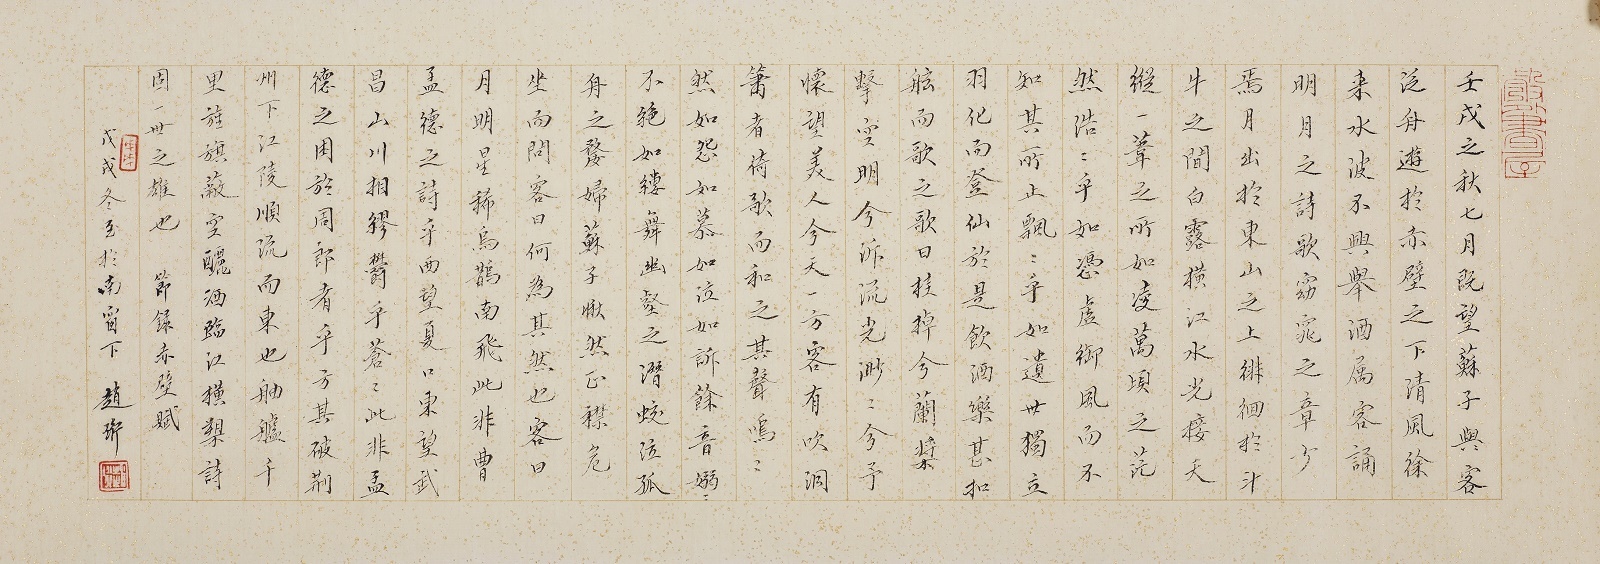 壬戌之秋七月既望蘇子與客
泛舟遊於赤壁之下清風徐
來水波不興舉酒属客誦
明月之詩歌窈窕之章少
焉月出於東山之上徘徊於斗
牛之間白露橫江水光接天
縱一葦之所如凌萬頃之茫
然浩〻乎如憑虛御風而不
知其所止飄〻乎如遺世獨立
羽化而登仙於是飲酒樂甚扣
舷而歌之歌曰桂棹兮蘭槳
擊空明兮泝流光渺〻兮予
懷望美人兮天一方客有吹洞
簫者倚歌而和之其聲嗚〻
然如怨如慕如泣如訴餘音嫋〻
不絶如縷舞幽壑之潛蛟泣孤
舟之嫠婦蘇子愀然正襟危
坐而問客曰何為其然也客曰
月明星稀烏鵲南飛此非曹
孟德之詩乎西望夏口東望武
昌山川相繆鬱乎蒼〻此非孟
德之困於周郎者乎方其破荆
州下江陵順流而東也舳艫千
里旌旗蔽空釃酒臨江橫槊詩
固一世之雄也 節錄赤壁賦
戊戌冬至於南窗下 趙